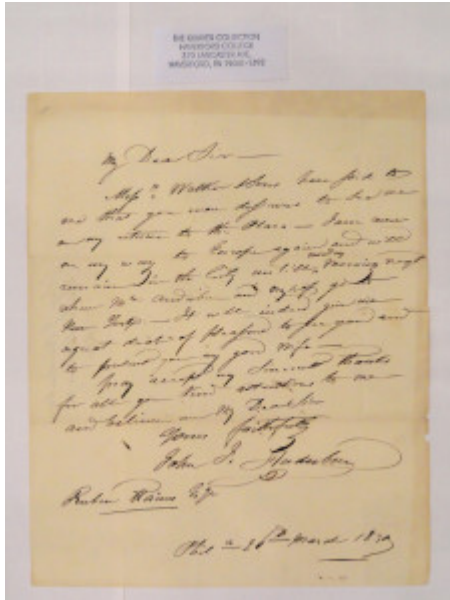 THE QUAKER COLLECTION
HAVERFORD COLLEGE
370 LANCASTER AVE.
HAVERFORD, PA 19041-1392
My Dear Sir —
Messrs Walker & Sons have said to
me that you were desirous to see me
on my return to this Place — I am now
on my way to Europe again and will
remain in the City until morning next
when Mrs Audubon and myself go to
New York — It will indeed give me
a great deal of pleasure to see you and
to present you my good Wife —
pray accept my sincerest thanks
for all your kind attentions to me
and believe me My Dear Sir
Yours faithfully
John J. Audubon
Reuben Haines Esqr
Phila 26th March 1830